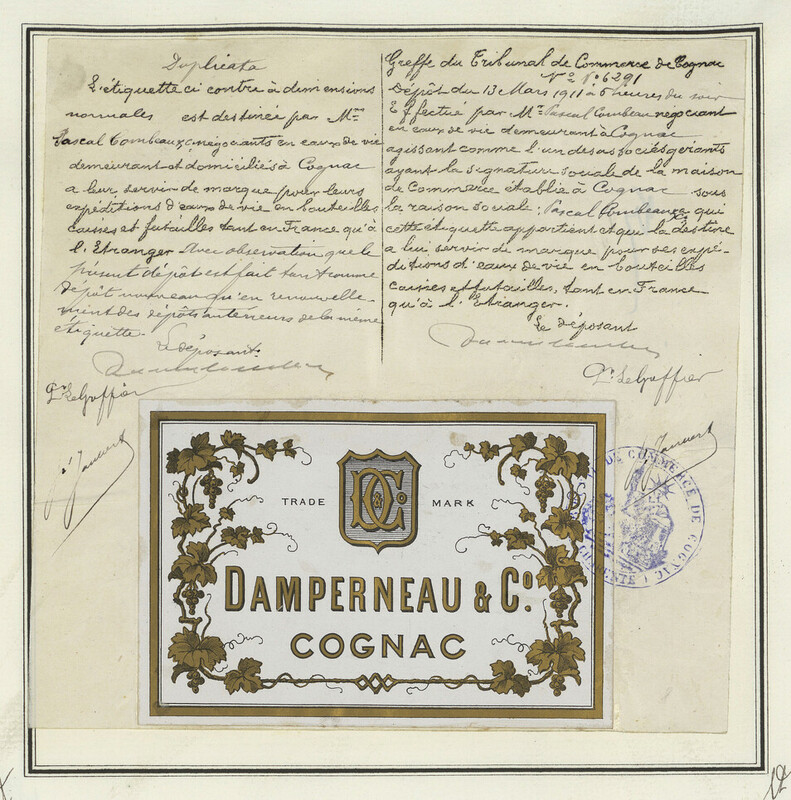 Duplicata
L'étiquette ci contre à dimensions
normales est destinée par Mrs
Pascal Combeau & Co négociants en eaux de vie
demeurant et domiciliés à Cognac
a leur servir de marque pour leurs
expéditions d'eaux de vie en bouteilles,
caisses et futailles tant en France qu'à
l'Etranger Avec observation que le
présent dépôt est fait tant comme
dépôt nouveau qu'en renouvelle-
ment des dépôts antérieurs de la même
étiquette.
Le déposant.
Greffe du Tribunal de Commerce de Cognac
No 6291
Dépôt du 13 Mars 1911 à 5 heures du soir
Effectué par Mr Pascal Combeau négociant
en eaux de vie demeurant à Cognac
agissant comme l'un des associés gérants
ayant la signature sociale de la maison
de Commerce établie à Cognac sous
la raison sociale: Pascal Combeau & Co qui
cette étiquette appartient et qui la destine
a lui servir de marque pour ses expé-
ditions d'eaux de vie en bouteilles
caisses et futailles, tant en France
qu'à l'Etranger.
Le déposant
Pr Le Greffier
Pr Le Greffier
TRADE MARK
D & Co
DAMPERNEAU & Co.
COGNAC
DE COMMERCE DE COGNAC